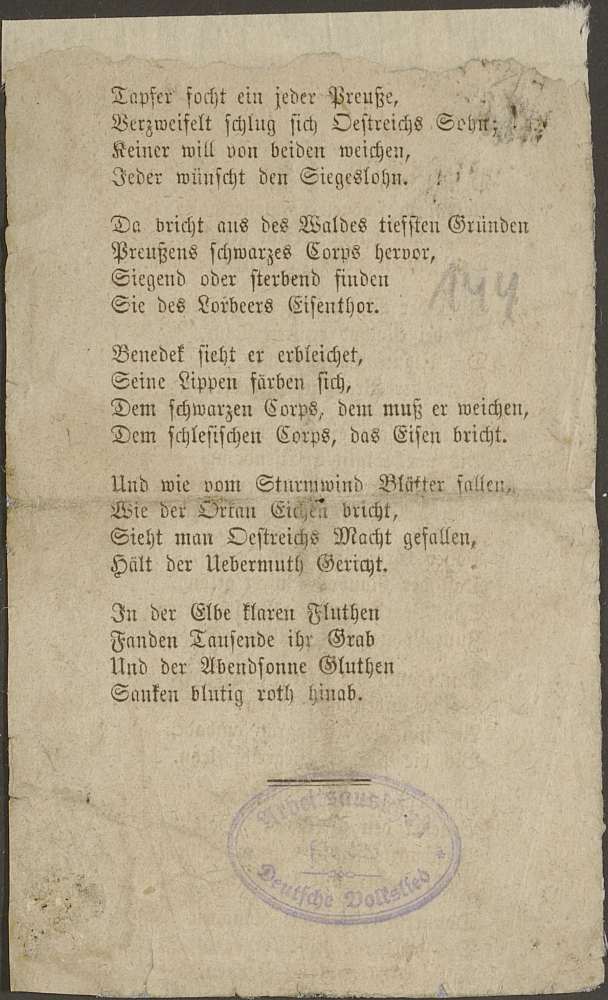 Tapfer focht ein jeder Preuße,
Verzweifelt schlug sich Oestreichs Sohn;
Keiner will von beiden weichen,
Jeder wünscht den Siegeslohn.
Da bricht aus des Waldes tiefsten Gründen
Preußens schwarzes Corps hervor,
Siegend oder sterbend finden
Sie des Lorbeers Eisenthor.
144
Benedek sieht er erbleichet,
Seine Lippen färben sich,
Dem schwarzen Corps, dem muß er weichen,
Dem schlesischen Corps, das Eisen bricht.
Und wie vom Sturmwind Blätter fallen,
Wie der Orkan Eichen bricht,
Sieht man Oestreichs Macht gefallen,
Hält der Uebermuth Gericht.
In der Elbe klaren Fluthen
Fanden Tausende ihr Grab
Und der Abendsonne Gluthen
Sanken blutig roth hinab.
Arbeitsausschuß
für das
Deutsche Volkslied